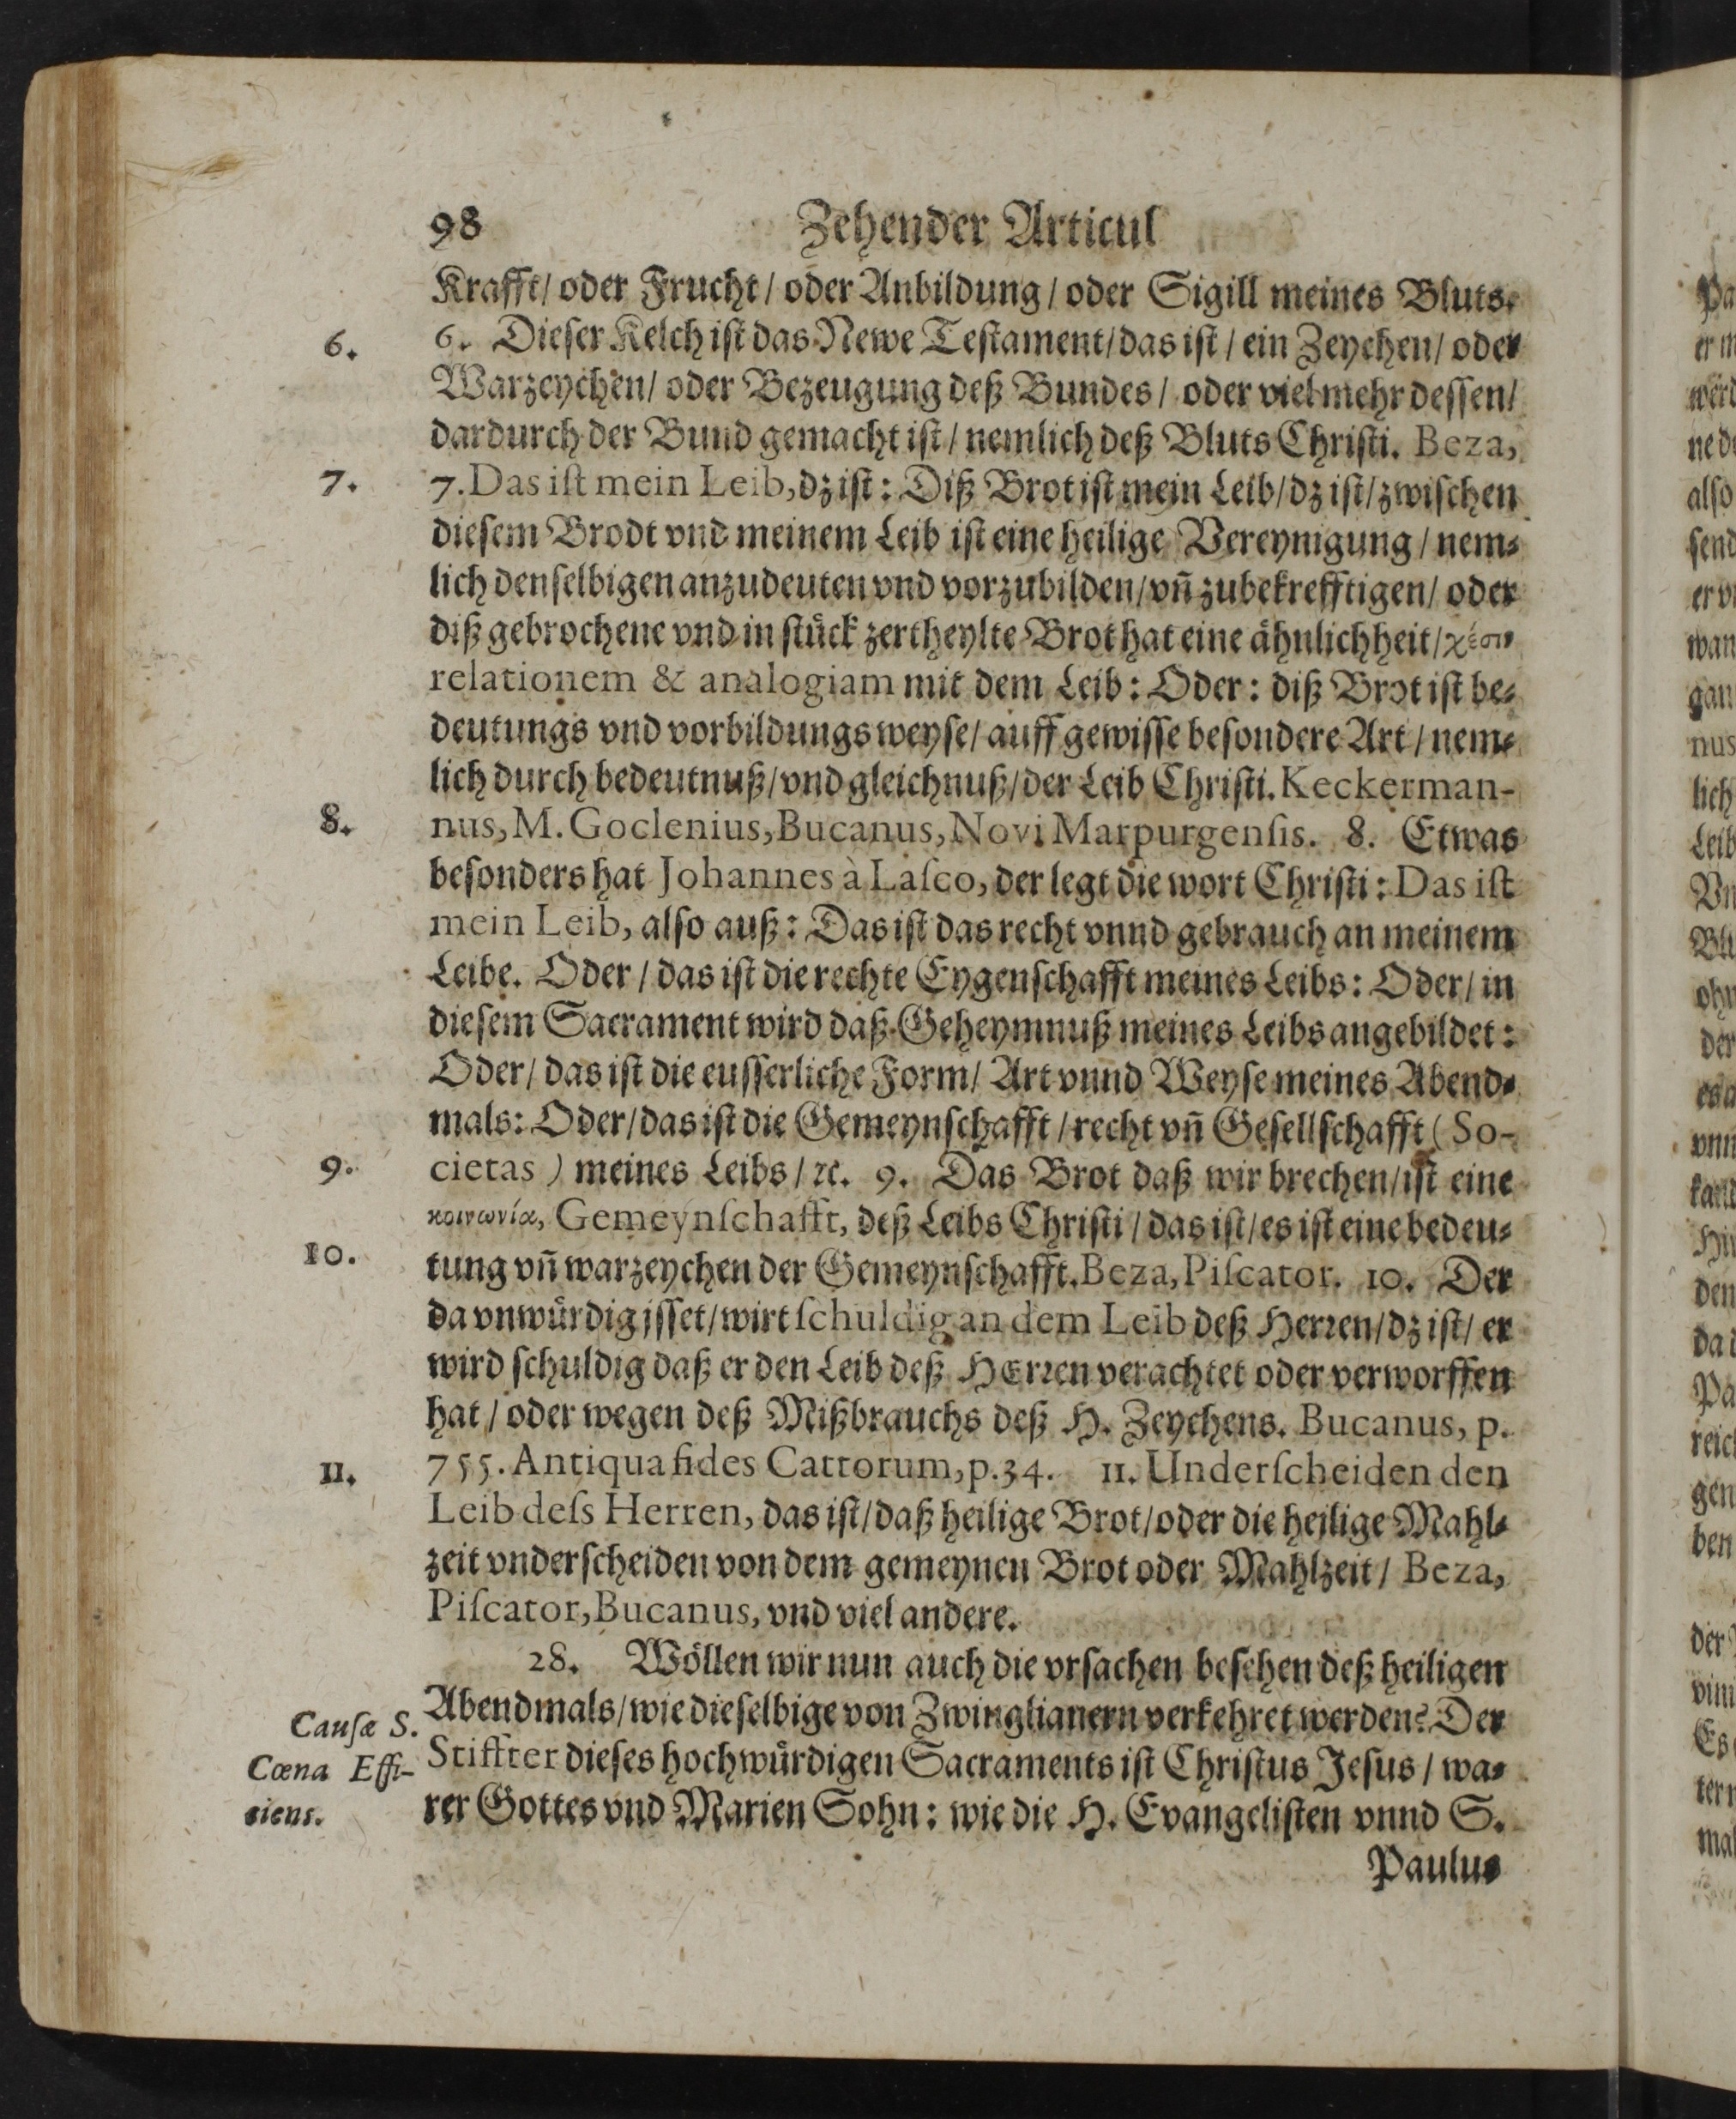 98 Zehender Articul
Krafft/ oder Frucht / oder Anbildung / oder Sigill meines Bluts.
6. 6. Dieser Kelch ist das Newe Testament/das ist / ein Zeychen/ oder
Warzeychen/ oder Bezeugung deß Bundes / oder vielmehr dessen/
dardurch der Bund gemacht ist / nemlich deß Bluts Christi. Beza,
7. 7. Das ist mein Leib, dz ist: Diß Brot ist mein Leib/ dz ist/ zwischen
diesem Brodt vnd meinem Leib ist eine heilige Vereynigung / nem⸗
lich denselbigen anzudeuten vnd vorzubilden/ vñ zubekrefftigen/ oder
diß gebrochene vnd in stück zertheylte Brot hat eine ähnlichheit/
relationem & analogiam mit dem Leib: Oder: diß Brot ist be⸗
deutungs vnd vorbildungs weyse/ auff gewisse besondere Art / nem⸗
lich durch bedeutnuß/ vnd gleichnuß/ der Leib Christi. Keckerman-
8. nus, M. Goclenius, Bucanus, Novi Marpurgensis. 8. Etwas
besonders hat Johannes à Lasco, der legt die wort Christi: Das ist
mein Leib, also auß: Das ist das recht vnnd gebrauch an meinem
Leibe. Oder / das ist die rechte Eygenschafft meines Leibs: Oder/ in
diesem Sacrament wird daß Geheymnuß meines Leibs angebildet:
Oder/ das ist die eusserliche Form/ Art vnnd Weyse meines Abend⸗
mals: Oder/ das ist die Gemeynschafft / recht vñ Gesellschafft ( So-
9. cietas ) meines Leibs / ꝛc. 9. Das Brot daß wir brechen/ ist eine
κοινωνία, Gemeynschafft, deß Leibs Christi / das ist/ es ist eine bedeu⸗
10. tung vñ warzeychen der Gemeynschafft. Beza, Piscator. 10. Der
da vnwürdig isset/ wirt schuldig an dem Leib deß Herꝛen/ dz ist/ er
wird schuldig daß er den Leib deß HErꝛen verachtet oder verworffen
hat / oder wegen deß Mißbrauchs deß H. Zeychens. Bucanus, p.
11. 755. Antiqua fides Cattorum, p. 34. 11. Underscheiden den
Leib dess Herren, das ist/ daß heilige Brot/ oder die heilige Mahl⸗
zeit vnderscheiden von dem gemeynen Brot oder Mahlzeit / Beza,
Piscator, Bucanus, vnd viel andere.
28. Wöllen wir nun auch die vrsachen besehen deß heiligen
Abendmals/ wie dieselbige von Zwinglianern verkehret werden? Der
Causæ S. Stiffter dieses hochwürdigen Sacraments ist Christus Jesus / wa⸗
Cœna Effi-
ciens. rer Gottes vnd Marien Sohn: wie die H. Evangelisten vnnd S.
Paulus